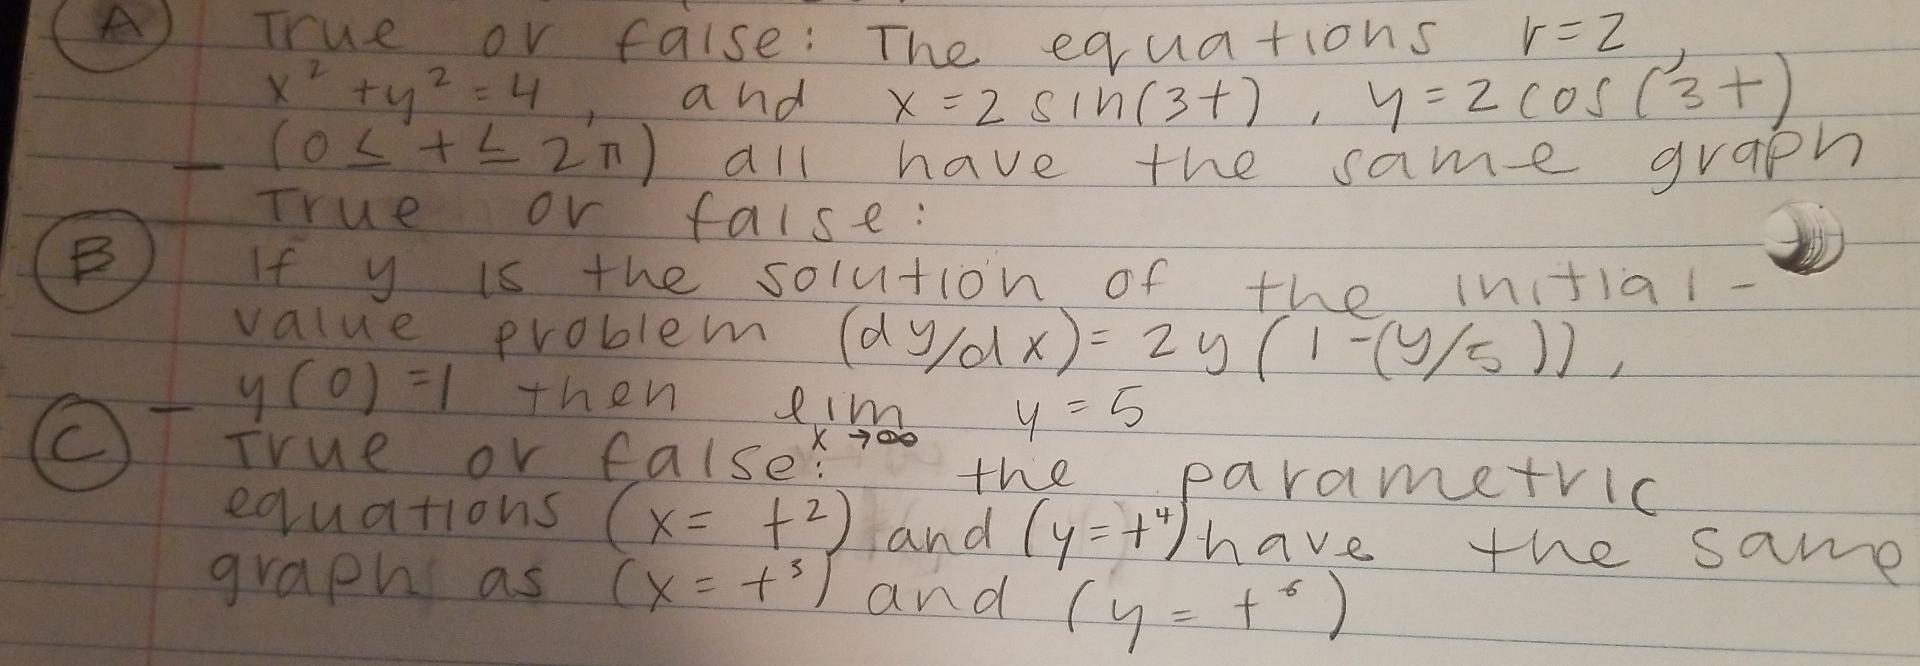 A True or false: The equations r=2,
x²+y²=4, and x=2sin(3t), y=2cos(3t)
(0≤t≤2π) all have the same graph
True or false:
B If y is the solution of the initial-
value problem (dy/dx)=2y(1-(y/5)),
y(0)=1 then lim x→∞ y=5
C True or false: the parametric
equations (x=t²) and (y=t⁴) have the same
graph as (x=t³) and (y=t⁶)